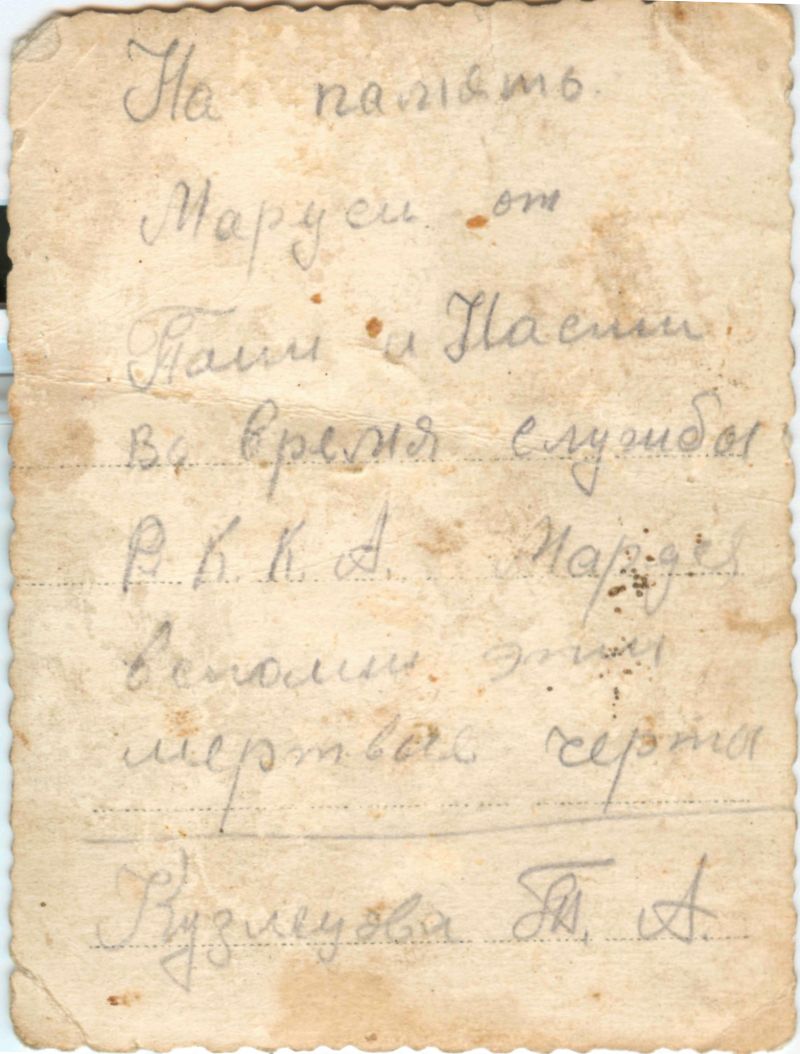 На память
Маруси от
Тани и Насти
во время службы
Р. К. К. А. Маруся
вспомни эти
мертвые черты
Т. А.